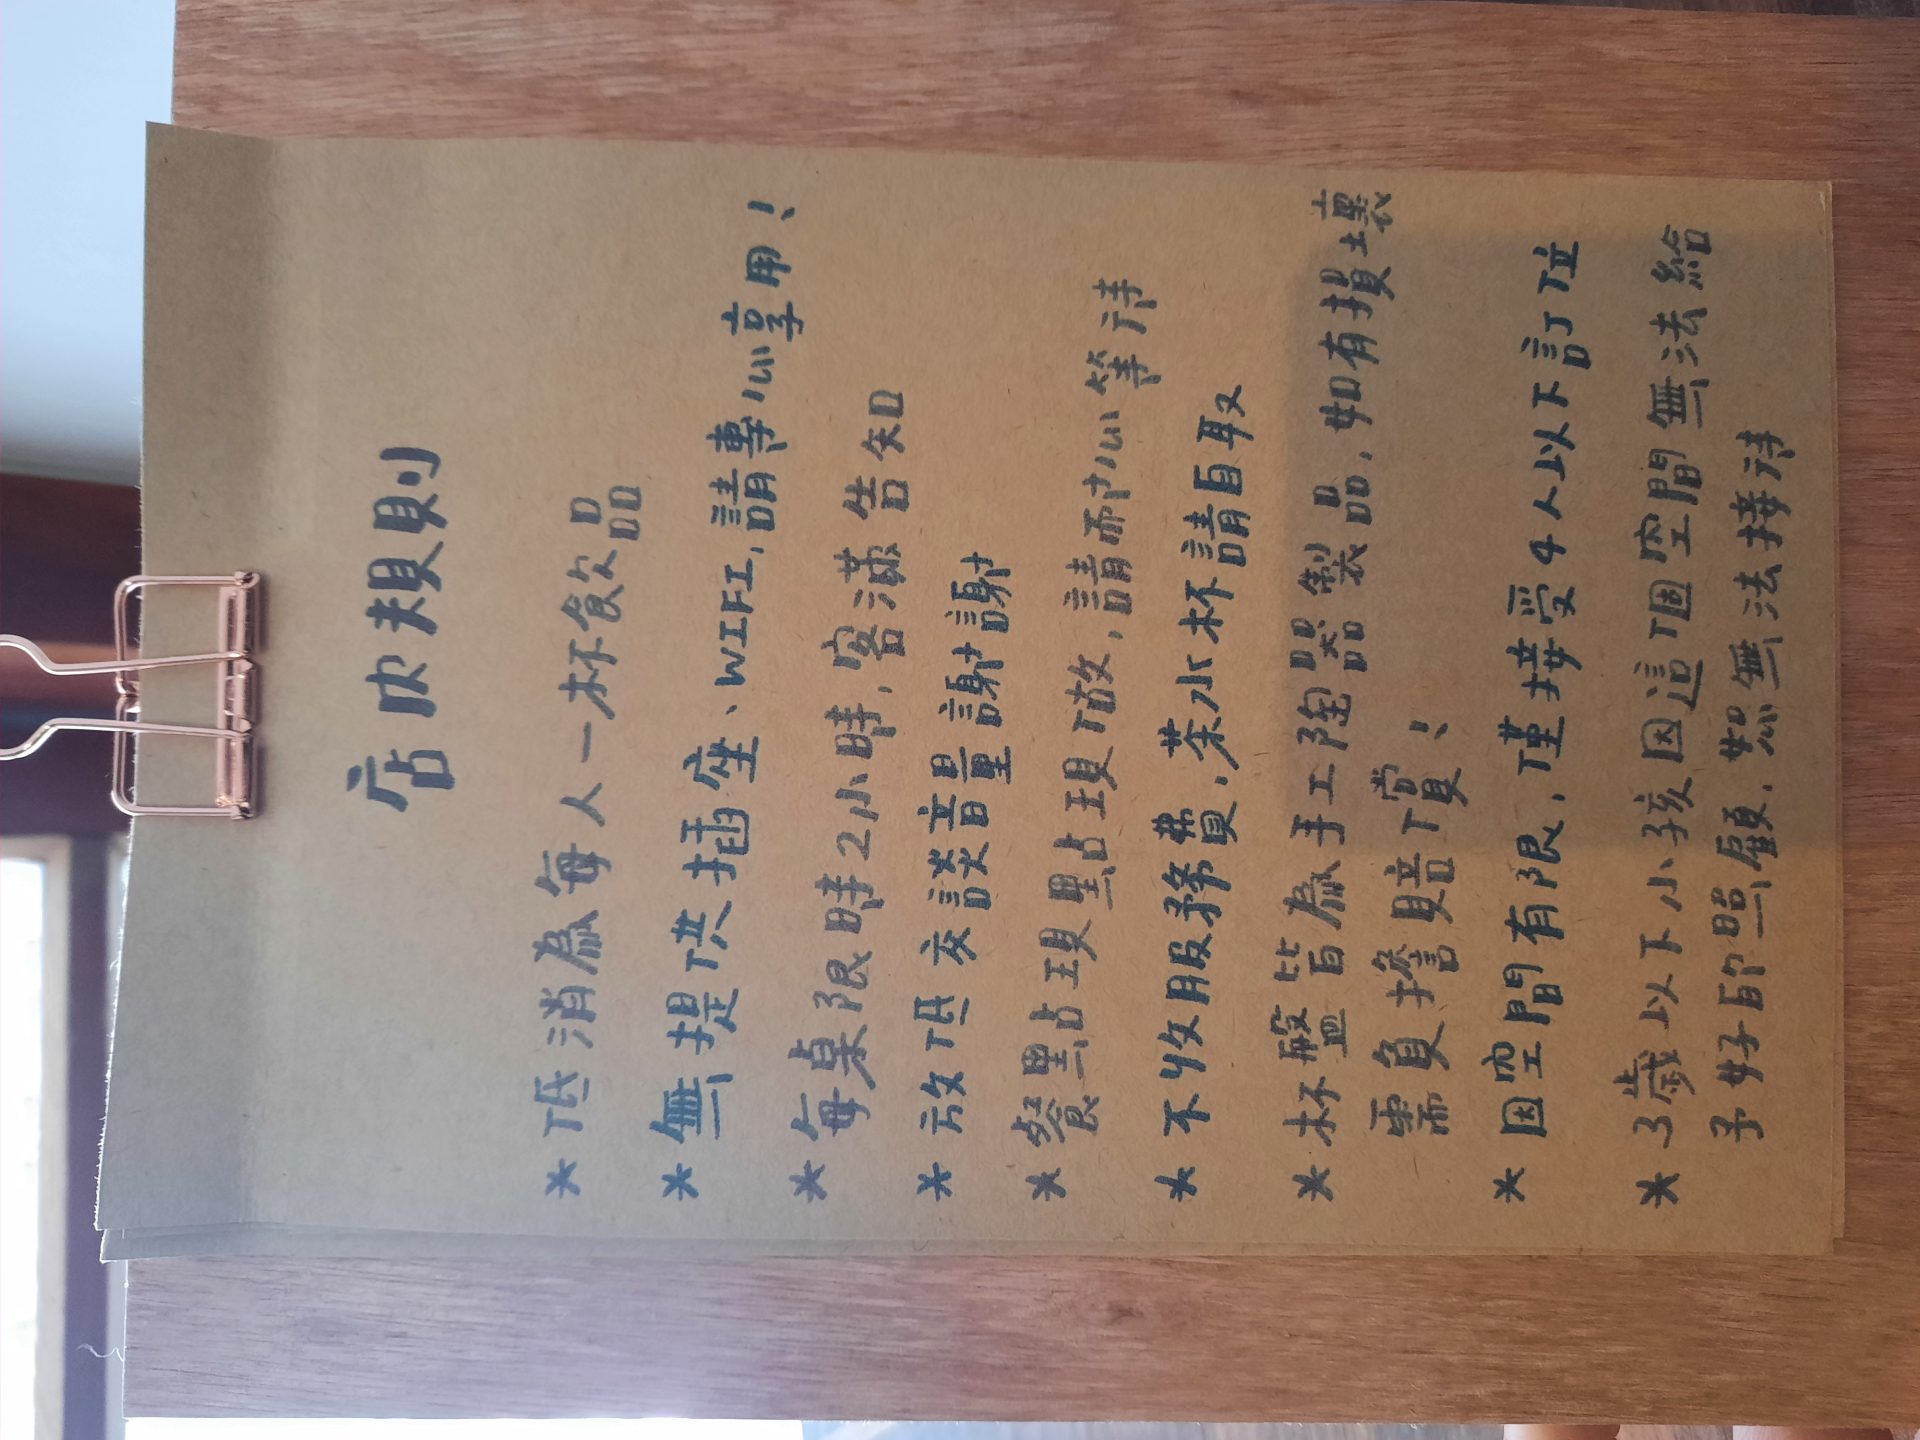 店內規則
* 低消為每人一杯飲品
* 無提供插座、WIFI,請專心享用!
* 每桌限時2小時,客滿告知
* 放低交談音量謝謝
* 餐點現點現做,請耐心等待
* 不收服務費,茶水杯請自取
* 杯盤皆為手工陶器製品,如有損壞
需負擔賠償!
* 因空間有限,僅接受4人以下訂位
* 3歲以下小孩因這個空間無法給
予好的照顧,恕無法接待